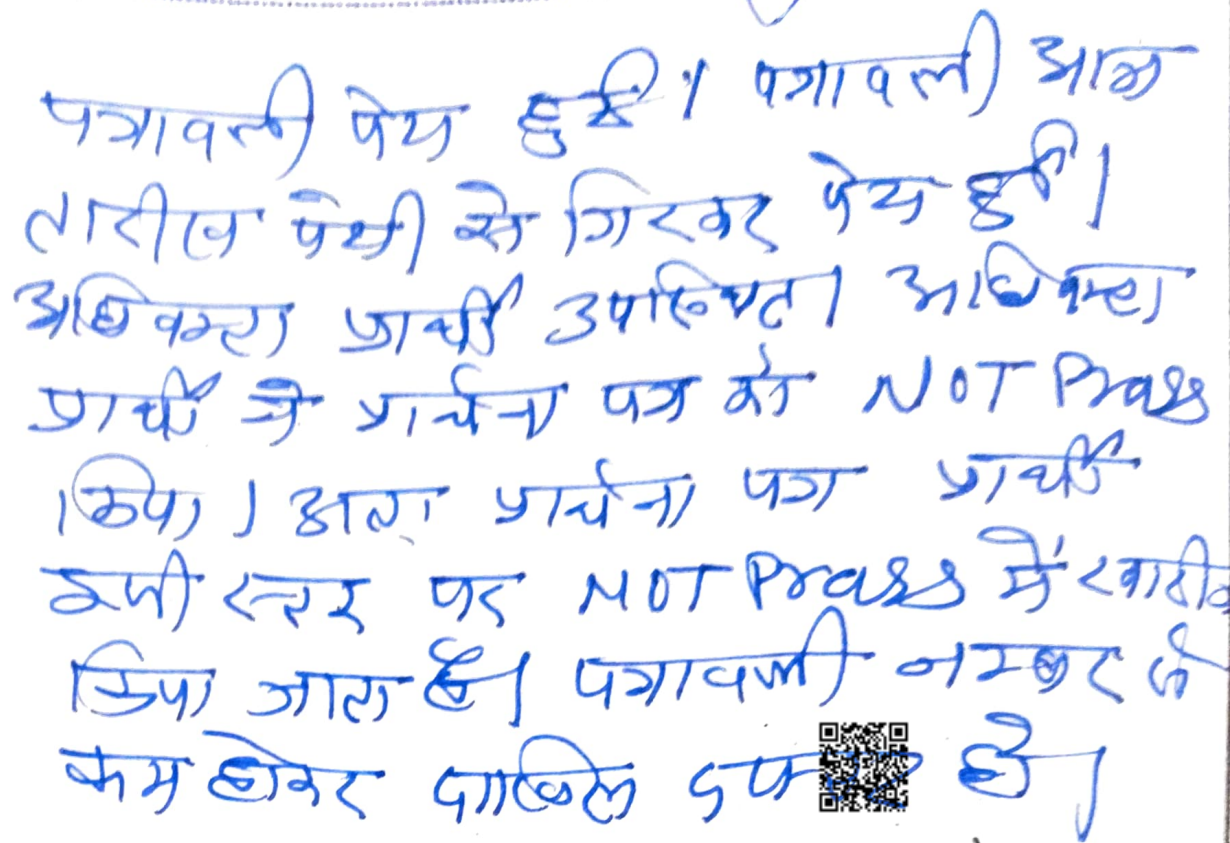 पत्रावली पेश हुई। पत्रावली आज
तारीख पेशी से गिरकर पेश हुई।
अधिवक्ता प्रार्थी उपस्थित। अधिवक्ता
प्रार्थी ने प्रार्थना पत्र को NOT Press
किया। अतः प्रार्थना पत्र प्रार्थी
इसी स्तर पर NOT Press में खारीज
किया जाता है। पत्रावली नम्बर से
कम होकर दाखिल दफ्तर हो।